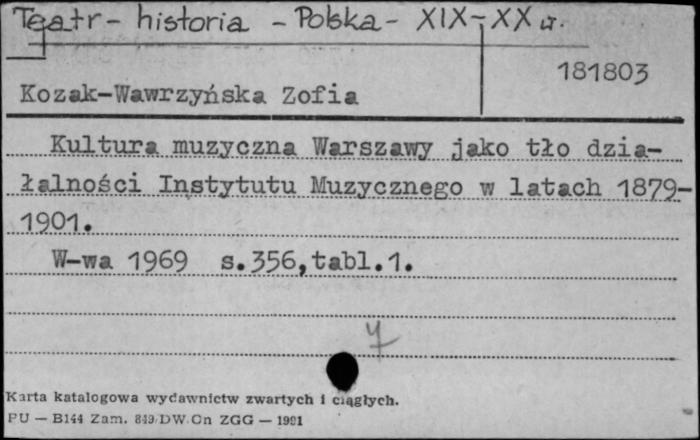 Teatr - historia - Polska - XIX-XX w.
181803
Kozak-Wawrzyńska Zofia
Kultura muzyczna Warszawy jako tło dzia-
łalności Instytutu Muzycznego w latach 1879-
1901.
W-wa 1969 s.356,tabl.1.
Karta katalogowa wydawnictw zwartych i ciągłych.
PU — B144 Zam. 849/DW/Cn ZGG — 1991